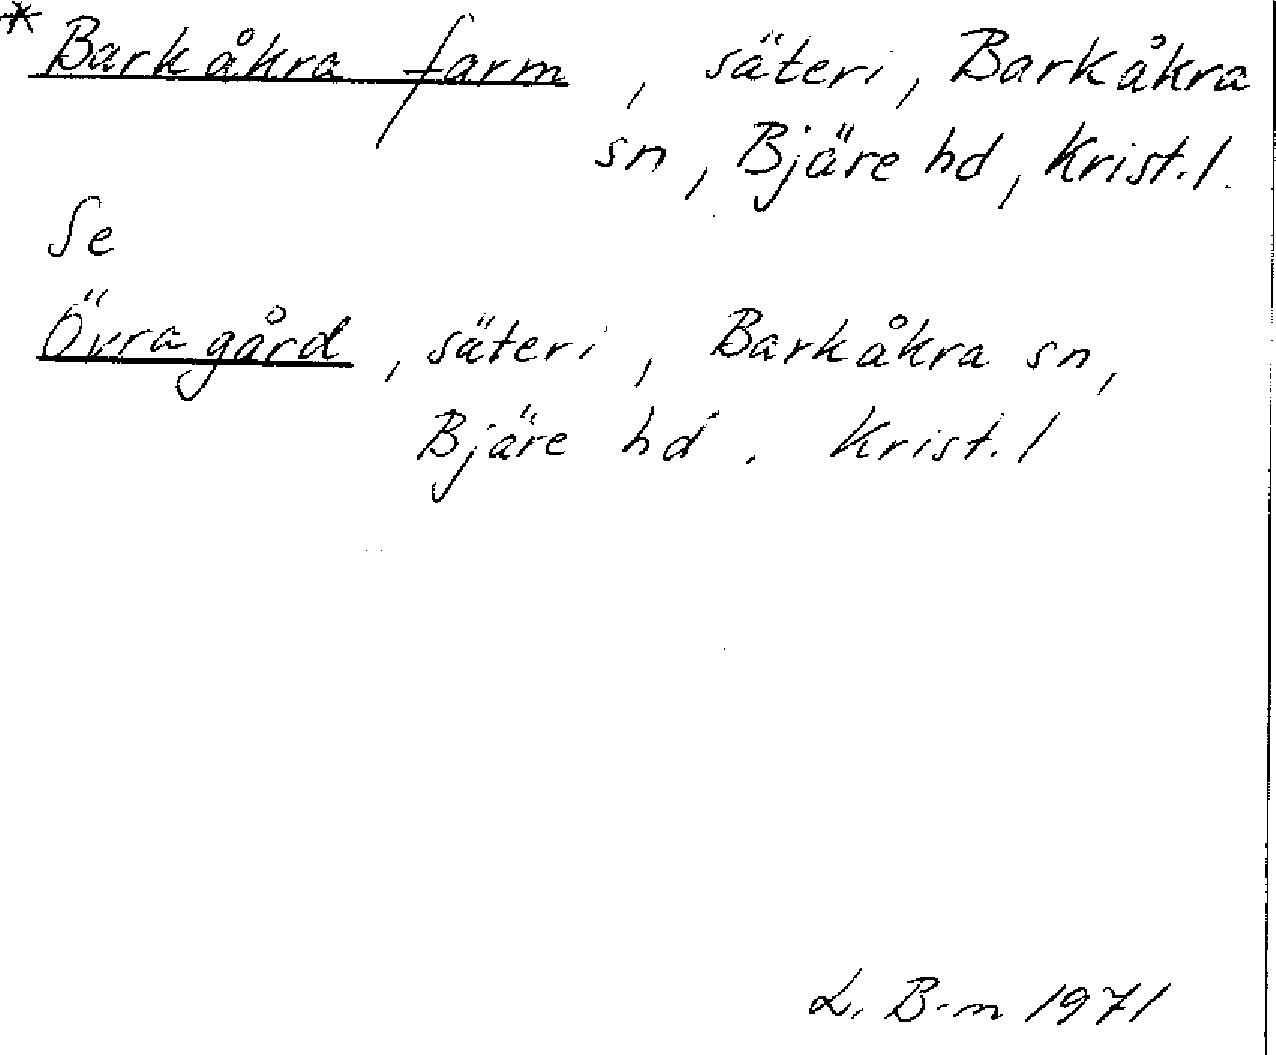 * Barkåkra farm, säteri, Barkåkra
sn, Bjäre hd, Krist. l.
Se
Övragård, säteri, Barkåkra sn,
Bjäre hd. Krist. l
L. B-m 1971